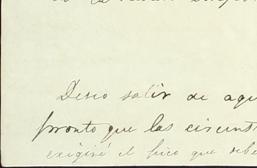 Deseo salir de aqu
pronto que las circunst
exigiré el giro que debe